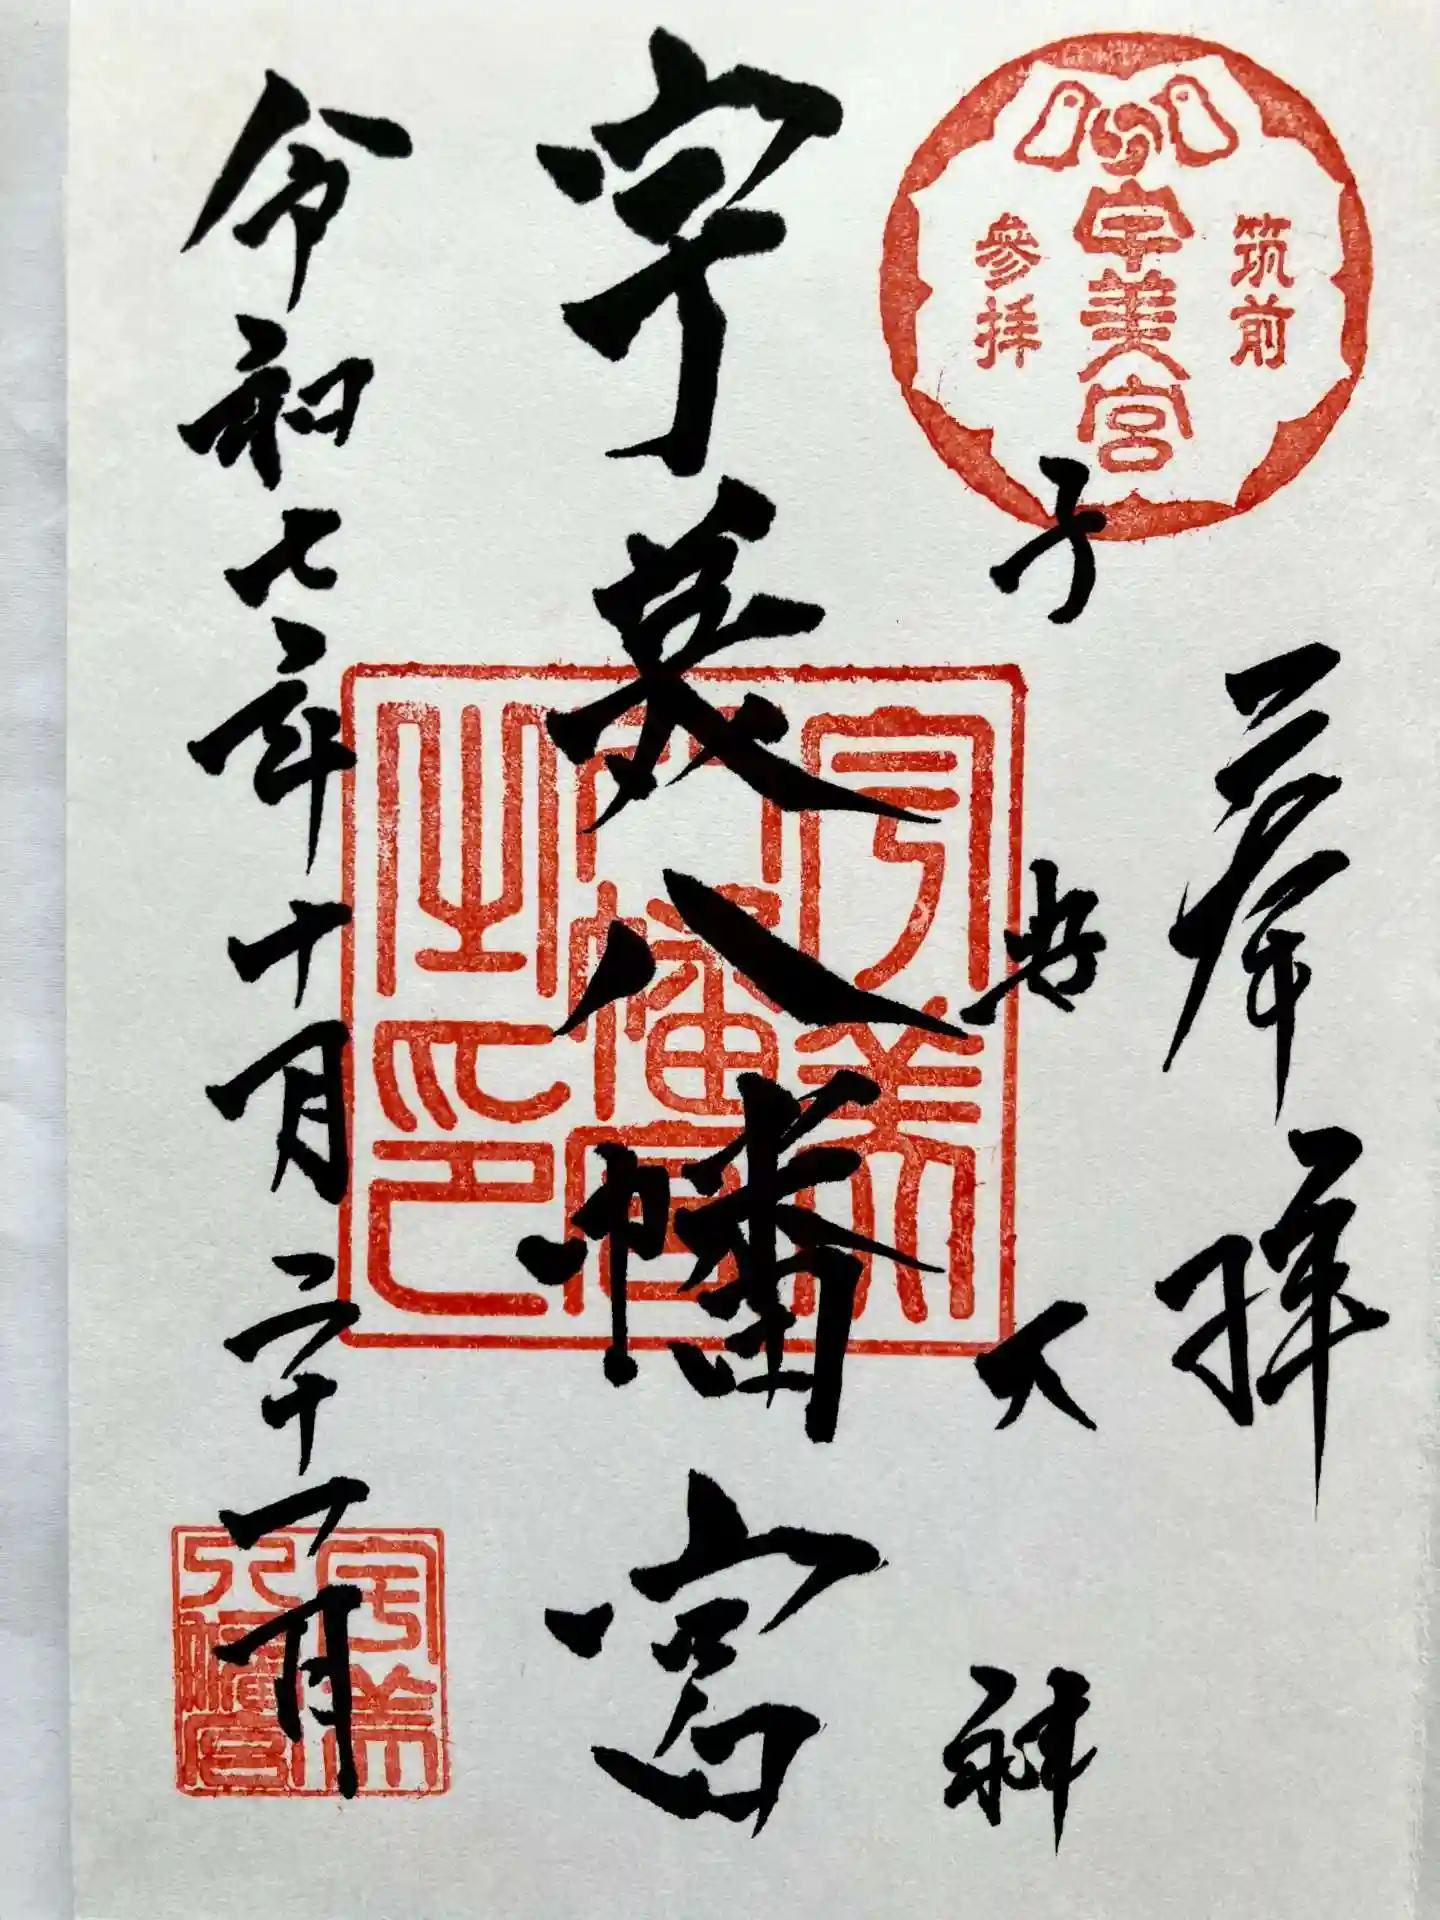 奉拝
筑前
宇美宮
參拝
子安大神
宇美八幡宮
宇美
八幡宮
之印
令和七年十月二十一日
宇美
八幡宮